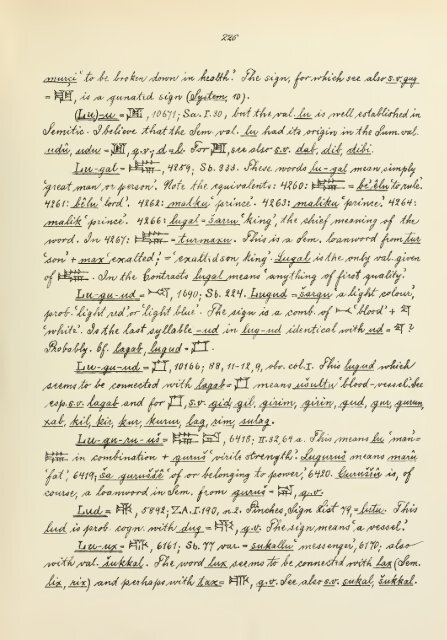 226
murçi 'to be broken down in health.' The sign, for which see also s.v. gug
= , is a gunated sign (System, 10).
(Lu)-u = , 10671; Sa. I. 30, but the val. lu is well established in
Semitic. I believe that the Sem. val. lu had its origin in the Sum. val.
udu, udu = , q.v.; d=l. For , see also s.v. dab, dib, dibi.
Lu-gal = , 4259; Sb. 333. These words lu-gal mean simply
'great man' or person. Note the equivalents: 4260: = bêlu 'to rule.'
4261: bêlu 'lord'. 4262: malku 'prince'. 4263: maliku 'prince'. 4264:
malik 'prince'. 4266: lugal = šarru 'king', the chief meaning of the
word. In 4267: = turmaxu. This is a Sem. loanword from tur
'son' + max 'exalted;' = 'exalted son, king'. Lugal is the only val. given
of . In the Contracts lugal means 'anything of first quality'.
Lu-gu-ud = , 1690; Sb. 224. Lugud = šargu 'a light colour',
prob. 'light red' or 'light blue'. The sign is a comb. of 'blood' +
'white'. Is the last syllable -ud in lug-ud identical with ud = ?
Probably. Cf. lagab, lugud = .
Lu-gu-ud = , 10166; 88, 11-12, 9, obv. col. I. This lugud which
seems to be connected with lagab = means ušultu 'blood-vessel.' See
esp. s.v. lagab and for , s.v. gid, gil, girim, girin, gud, gur, gurun,
xab, kil, kir, kur, kurun, lag, rim, sulag.
Lu-gu-ru-uš = , 6418; II. 32, 64 a. This means lu 'man' =
in combination + guruš 'virile strength'. Luguruš means marû
'fat', 6419; ša guruššê 'of or belonging to power', 6420. Guruššû is, of
course, a loanword in Sem. from guruš = , q.v.
Lud = , 5892; Z.A. I. 190, n. 2. Pinches, Sign List 79, = lutu. This
lud is prob. cogn. with dug = , q.v. The sign means 'a vessel.'
Lu-ux = , 6161; Sb. 77 var. = sukallu 'messenger', 6170, also
with val. šukkal. The word lux seems to be connected with lax (Sem.
lix, rix) and perhaps with tax = , q.v. See also s.v. sukal, šukkal.